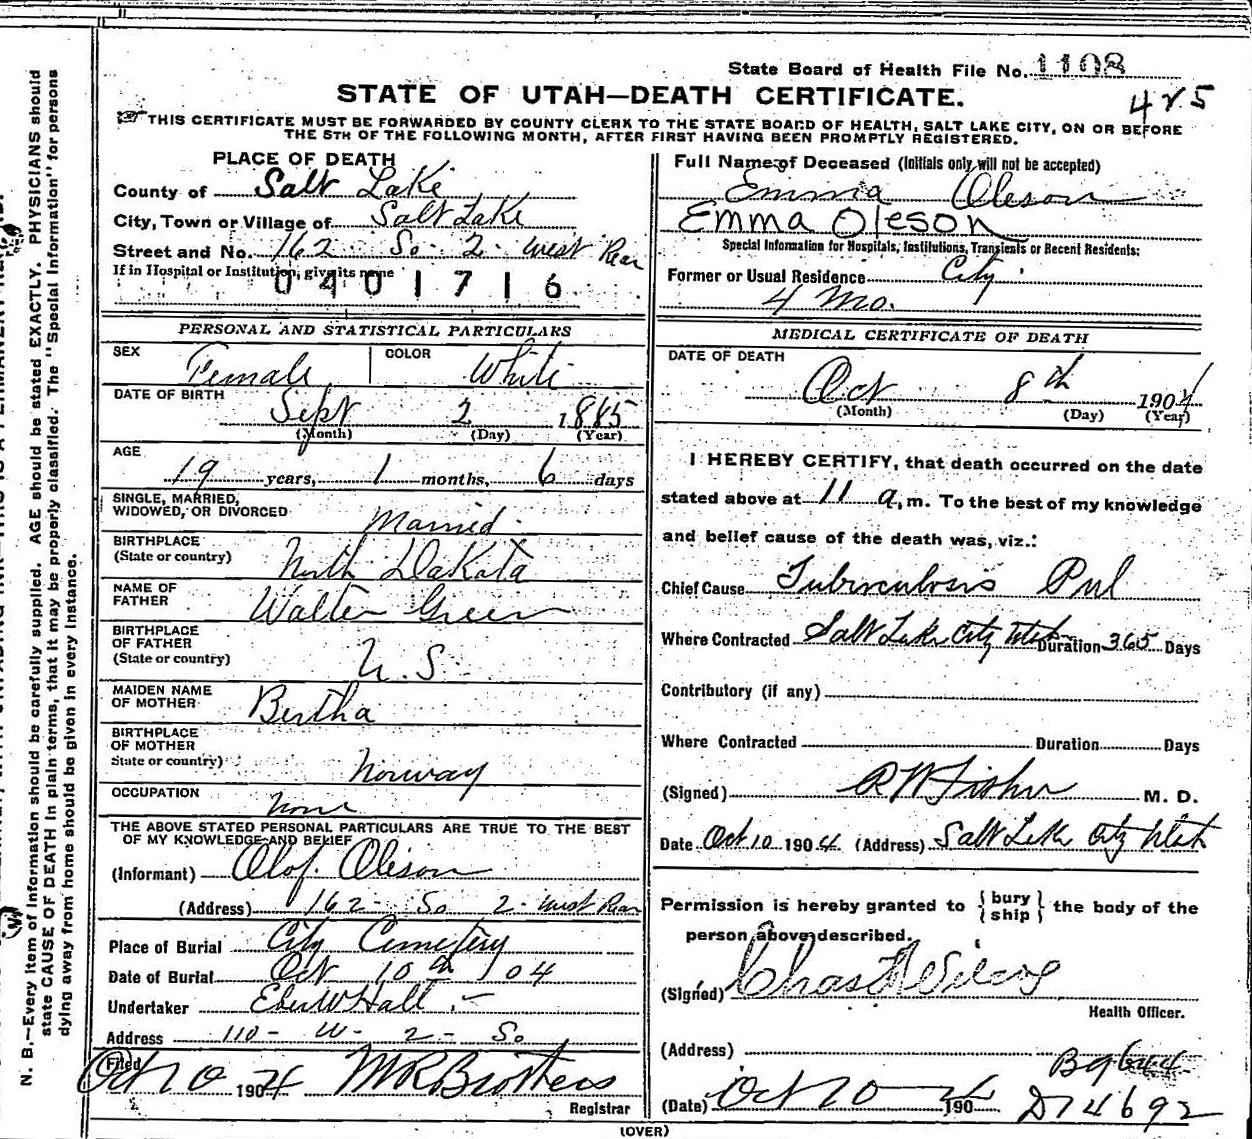 State Board of Health File No. 1108
STATE OF UTAH—DEATH CERTIFICATE.
425
THIS CERTIFICATE MUST BE FORWARDED BY COUNTY CLERK TO THE STATE BOARD OF HEALTH, SALT LAKE CITY, ON OR BEFORE
THE 5TH OF THE FOLLOWING MONTH, AFTER FIRST HAVING BEEN PROMPTLY REGISTERED.
PLACE OF DEATH
County of Salt Lake
City, Town or Village of Salt Lake
Street and No. 162 So. 2 West Rear
If in Hospital or Institution, give its name
0401716
PERSONAL AND STATISTICAL PARTICULARS
SEX Female COLOR White
DATE OF BIRTH Sept 2 1885
(Month) (Day) (Year)
AGE
19 years, 1 months, 6 days
SINGLE, MARRIED,
WIDOWED, OR DIVORCED Married
BIRTHPLACE
(State or country) North Dakota
NAME OF
FATHER Walter Green
BIRTHPLACE
OF FATHER
(State or country) U.S.
MAIDEN NAME
OF MOTHER Bertha
BIRTHPLACE
OF MOTHER
State or country) Norway
OCCUPATION None
THE ABOVE STATED PERSONAL PARTICULARS ARE TRUE TO THE BEST
OF MY KNOWLEDGE AND BELIEF
(Informant) Olof Oleson
(Address) 162 So 2 West Rear
Place of Burial City Cemetery
Date of Burial Oct 10th 104
Undertaker Eber W Hall
Address 110 - W - 2 - So
Filed
Oct 10 1904 M R Brothers
Registrar
Full Name of Deceased (Initials only will not be accepted)
Emma Oleson
Emma Oleson
Special Information for Hospitals, Institutions, Transients or Recent Residents:
Former or Usual Residence City
4 Mo.
MEDICAL CERTIFICATE OF DEATH
DATE OF DEATH
Oct 8th 1904
(Month) (Day) (Year)
I HEREBY CERTIFY, that death occurred on the date
stated above at 11 a. m. To the best of my knowledge
and belief cause of the death was, viz.:
Chief Cause Tuberculosis Pul
Where Contracted Salt Lake City Utah Duration 365 Days
Contributory (if any)
Where Contracted Duration Days
(Signed) M. D.
Date Oct 10 1904 (Address) Salt Lake City Utah
Permission is hereby granted to { bury ship } the body of the
person above described.
(Signed) Chas
Health Officer.
(Address)
B9644
(Date) Oct 10 1904 D74692
(OVER)
N. B.—Every item of information should be carefully supplied. AGE should be stated EXACTLY. PHYSICIANS should
state CAUSE OF DEATH in plain terms, that it may be properly classified. The "Special Information" for persons
dying away from home should be given in every instance.